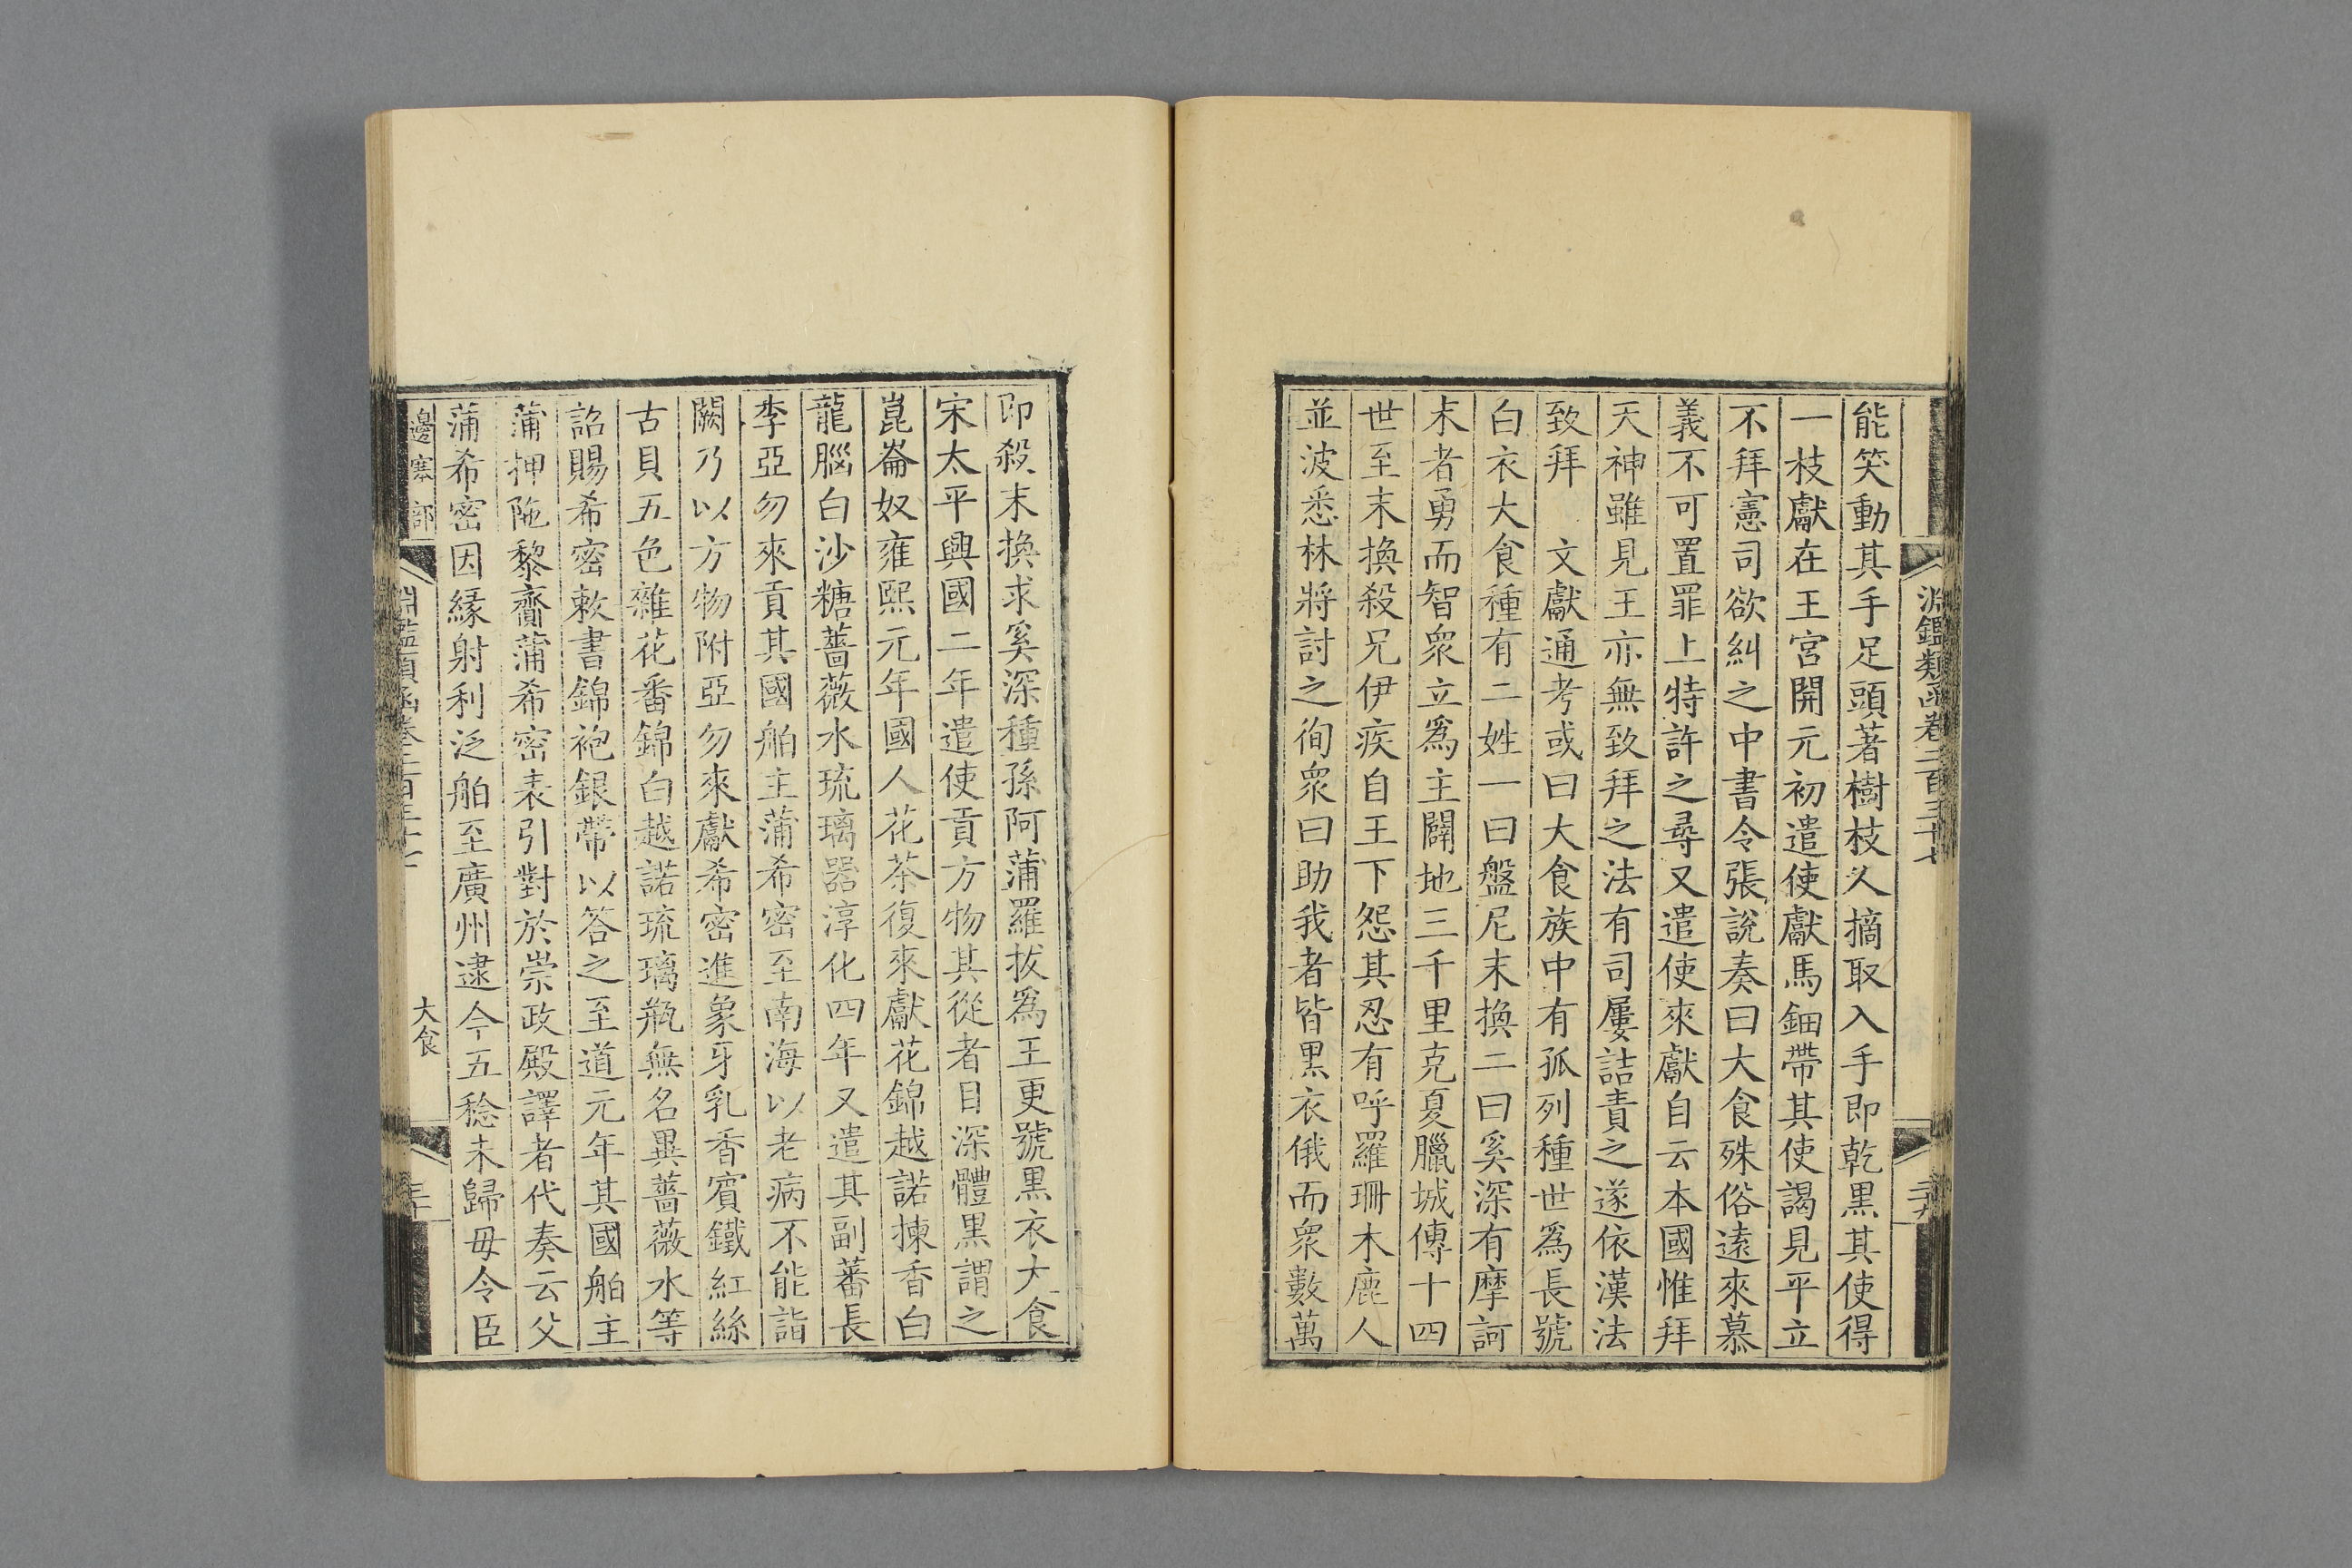 淵鑑類函卷二百三十七
二十九
能笑動其手足頭著樹枝久摘取入手即乾黑其使得
一枝獻在王宮開元初遣使獻馬鈿帶其使謁見平立
不拜憲司欲糾之中書令張說奏曰大食殊俗遠來慕
義不可置罪上特許之尋又遣使來獻自云本國惟拜
天神雖見王亦無致拜之法有司屢詰責之遂依漢法
致拜　文獻通考或曰大食族中有孤列種世爲長號
白衣大食種有二姓一曰盤尼末換二曰奚深有摩訶
末者勇而智衆立爲主闢地三千里克夏臘城傳十四
世至末換殺兄伊疾自王下怨其忍有呼羅珊木鹿人
並波悉林將討之徇衆曰助我者皆黑衣俄而衆數萬
即殺末換求奚深種孫阿蒲羅拔爲王更號黑衣大食
宋太平興國二年遣使貢方物其從者目深體黑謂之
崑崙奴雍熙元年國人花茶復來獻花錦越諾揀香白
龍腦白沙糖薔薇水琉璃器淳化四年又遣其副蕃長
李亞勿來貢其國舶主蒲希密至南海以老病不能詣
闕乃以方物附亞勿來獻希密進象牙乳香賓鐵紅絲
古貝五色雜花番錦白越諾琉璃瓶無名異薔薇水等
詔賜希密敕書錦袍銀帶以答之至道元年其國舶主
蒲押陁黎齎蒲希密表引對於崇政殿譯者代奏云父
蒲希密因緣射利泛舶至廣州逮今五稔未歸毋令臣
邊塞部
淵鑑類函卷二百三十七
大食
三十